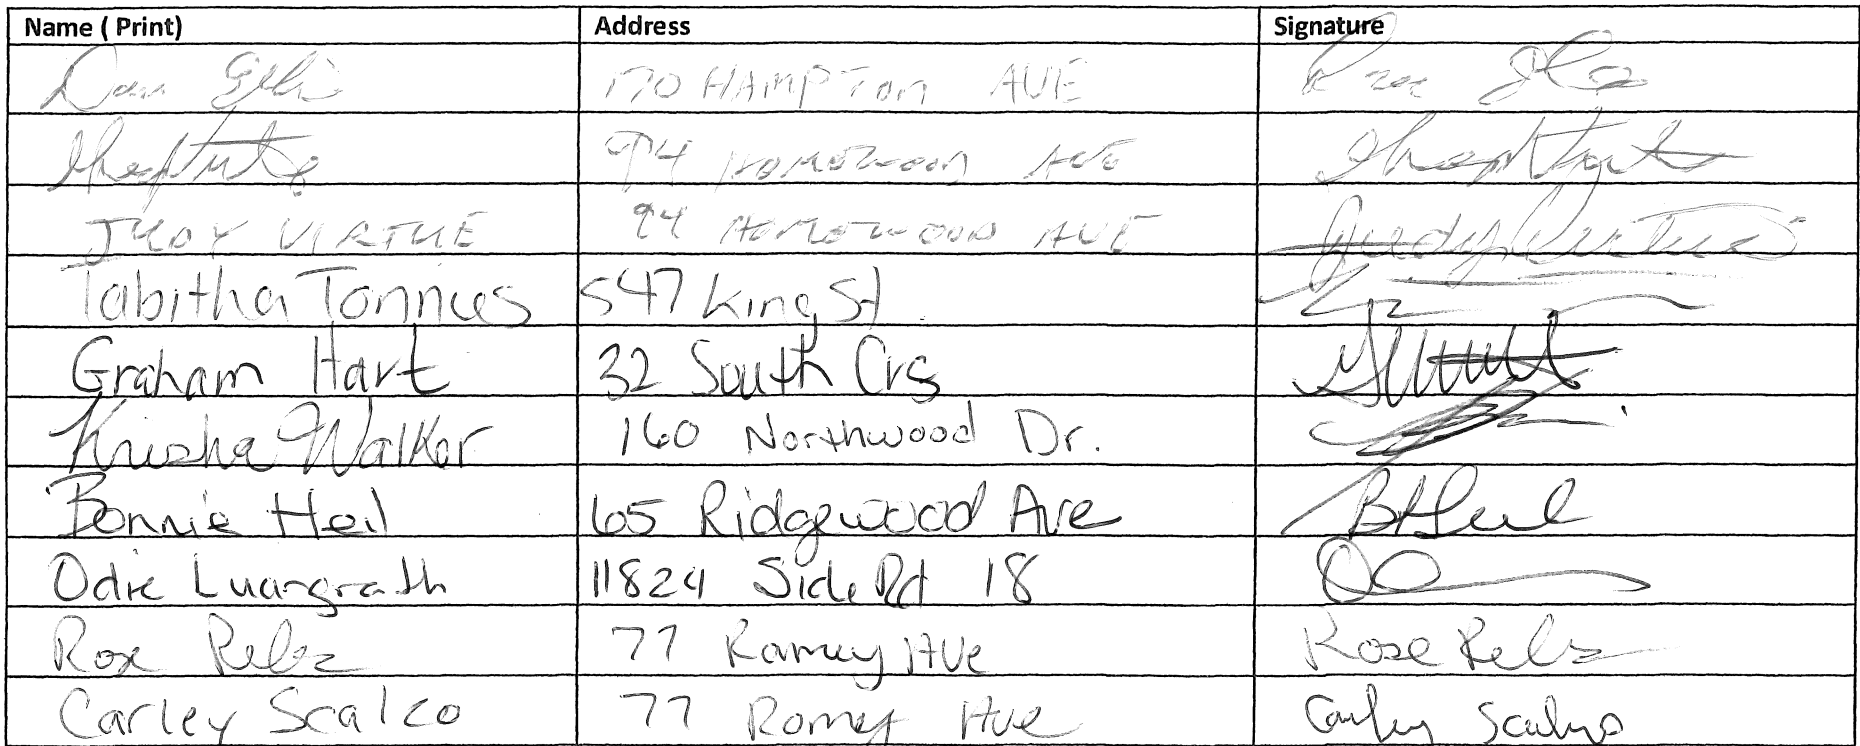 Name ( Print) Address Signature
Dan 170 HAMPTON AVE
94 HOMEWOOD AVE
JUDY VIRTUE 94 HOMEWOOD AVE Judy Virtue
Tabitha Tonnies 547 King St
Graham Hart 32 South Crs
Krisha Walker 160 Northwood Dr.
Bonnie Heil 65 Ridgewood Ave BHeil
Odie Luangrath 11824 Side Rd 18
Rose Pelz 77 Ramey AVe Rose Pelz
Carley Scalzo 77 Ramey Ave Carley Scalzo